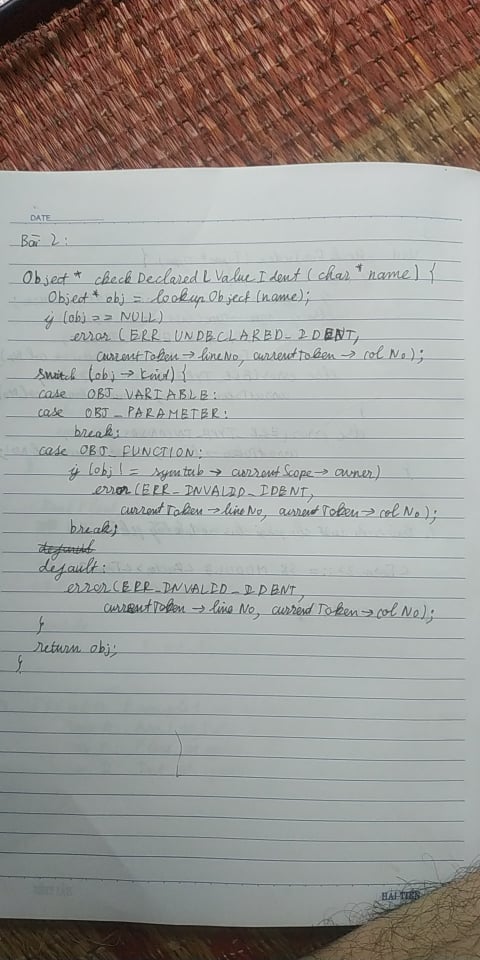 DATE
Bài 2:
Object * checkDeclaredLValueIdent (char * name) {
Object * obj = lookupObject (name);
if (obj == NULL)
error (ERR_UNDECLARED_IDENT,
currentToken → lineNo, currentToken → colNo);
switch (obj → kind) {
case OBJ_VARIABLE:
case OBJ_PARAMETER:
break;
case OBJ_FUNCTION:
if (obj != symtab → currentScope → owner)
error (ERR_INVALID_IDENT,
currentToken → lineNo, currentToken → colNo);
break;
default:
error (ERR_INVALID_IDENT,
currentToken → lineNo, currentToken → colNo);
}
return obj;
}
HẢI TIẾN